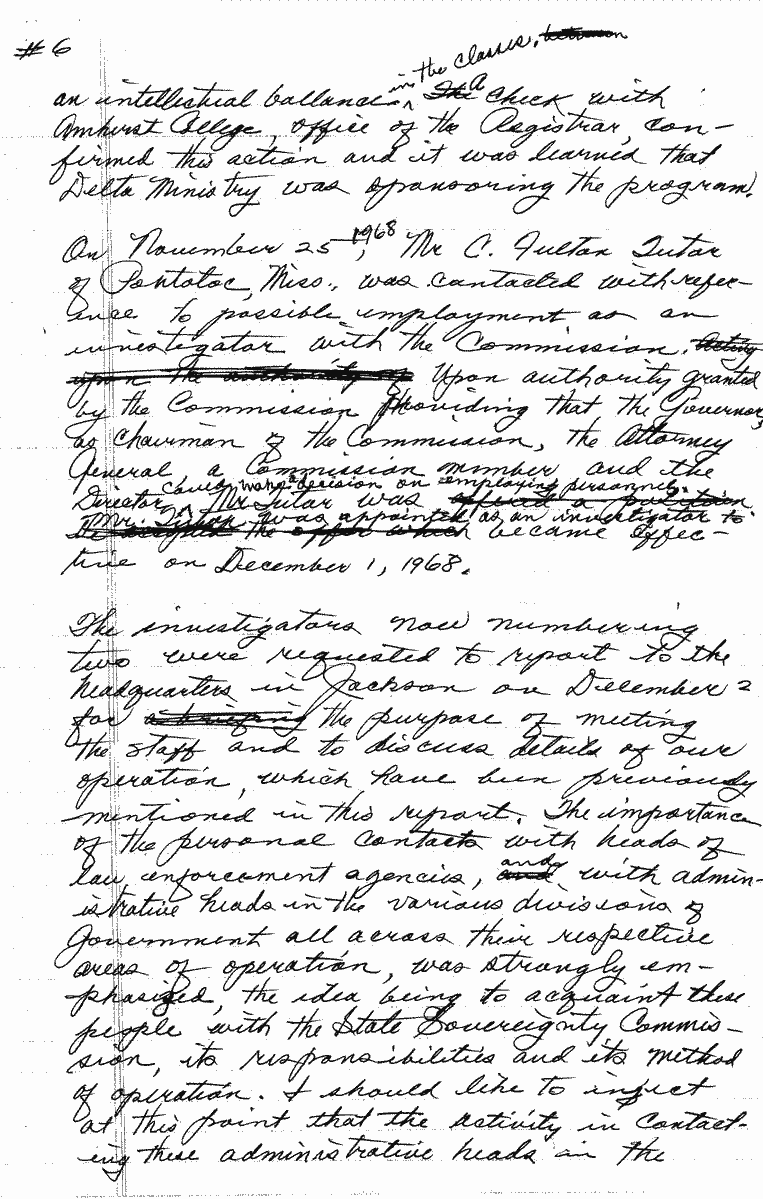 # 6
in the classes. between
an intellectual ballance ^ The A check with
Amherst College, office of the Registrar, con-
firmed this action and it was learned that
Delta Ministry was sponsoring the program.
On November 25, 1968, Mr C. Fulton Tutor
of Pontotoc, Miss., was contacted with refer-
ence to possible employment as an
investigator with the Commission. Acting
upon the authority of Upon authority granted
by the Commission providing that the Governor,
as Chairman of the Commission, the Attorney
General, a Commission member and the
could make decision on employing personnel.
Director, Mr. Tutor was offered a position
Mr. Tutor was appointed as an investigator to
He accepted the offer which became effec-
tive on December 1, 1968.
The investigators now numbering
two were requested to report to the
headquarters in Jackson on December 2
for a briefing the purpose of meeting
the staff and to discuss details of our
operation, which have been previously
mentioned in this report. The importance
of the personal contacts with heads of
law enforcement agencies, and and with admin-
istrative heads in the various divisions of
Government all across their respective
areas of operation, was strongly em-
phasized, the idea being to acquaint these
people with the State Sovereignty Commis-
sion, its responsibilities and its method
of operation. I should like to inject
at this point that the activity in contact-
ing these administrative heads in the